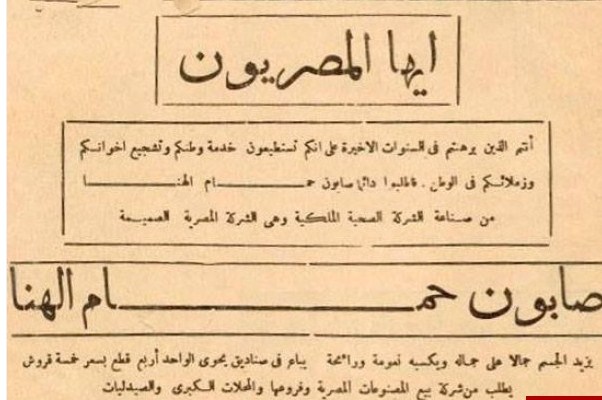 ايها المصريون
أنتم الذين برهنتم فى السنوات الاخيرة على انكم تستطيعون خدمة وطنكم وتشجيع اخوانكم
وزملائكم فى الوطن . فاطلبوا دائما صابون حمـــــــــام الهنـــــــــا
من صناعة الشركة الصحية الملكية وهى الشركة المصرية الصميمة
صابون حمـــــــــام الهنا
يزيد الجسم جمالا على جماله ويكسبه نعومة ورائحة يباع فى صناديق يحوى الواحد أربع قطع بسعر خمسة قروش
يطلب من شركة بيع المصنوعات المصرية وفروعها والمحلات الكبرى والصيدليات